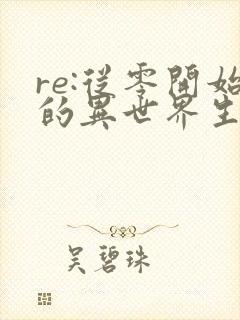 re:從零開始
的異世界生
吳碧珠